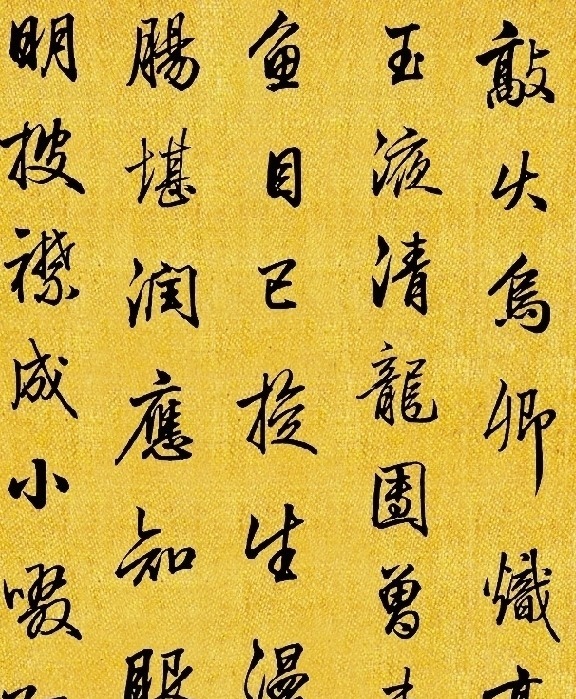 敲火烏卿熾
玉液清龍團曾
魚目已捡生漫
腸堪潤應知
明披襟成小啜